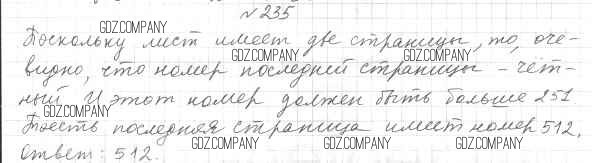 №235
GDZ.COMPANY GDZ.COMPANY
Поскольку лист имеет две страницы, то, оче-
GDZ.COMPANY GDZ.COMPANY
видно, что номер последней страницы – чёт-
ный. И этот номер должен быть больше 251
GDZ.COMPANY
Тоесть последняя страница имеет номер 512.
GDZ.COMPANY GDZ.COMPANY
Ответ: 512.